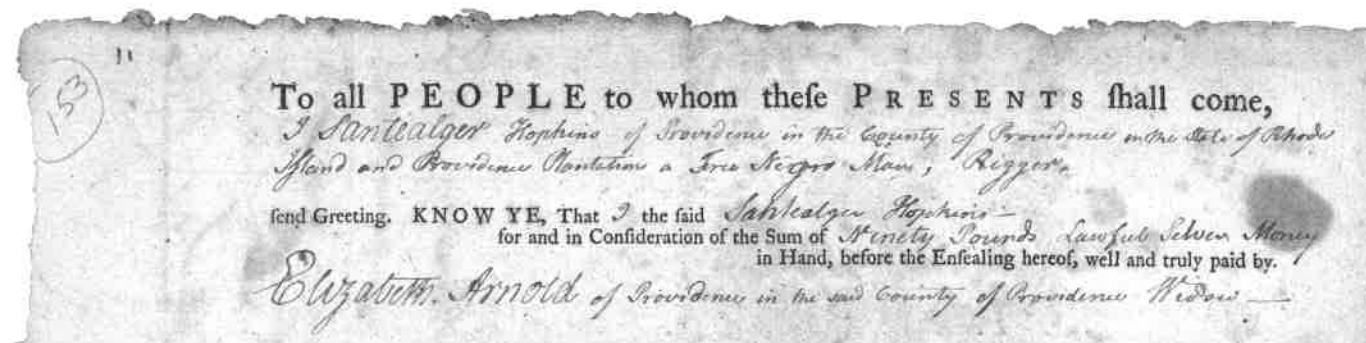 11
153
To all PEOPLE to whom theſe PRESENTS ſhall come,
I Santealger Hopkins of Providence in the County of Providence in the State of Rhode
Iſland and Providence Plantations a Free Negro Man, Rigger.
ſend Greeting. KNOW YE, That I the ſaid Santealger Hopkins —
for and in Conſideration of the Sum of Ninety Pounds Lawful Silver Money
in Hand, before the Enſealing hereof, well and truly paid by.
Elizabeth Arnold of Providence in the said County of Providence Widow —